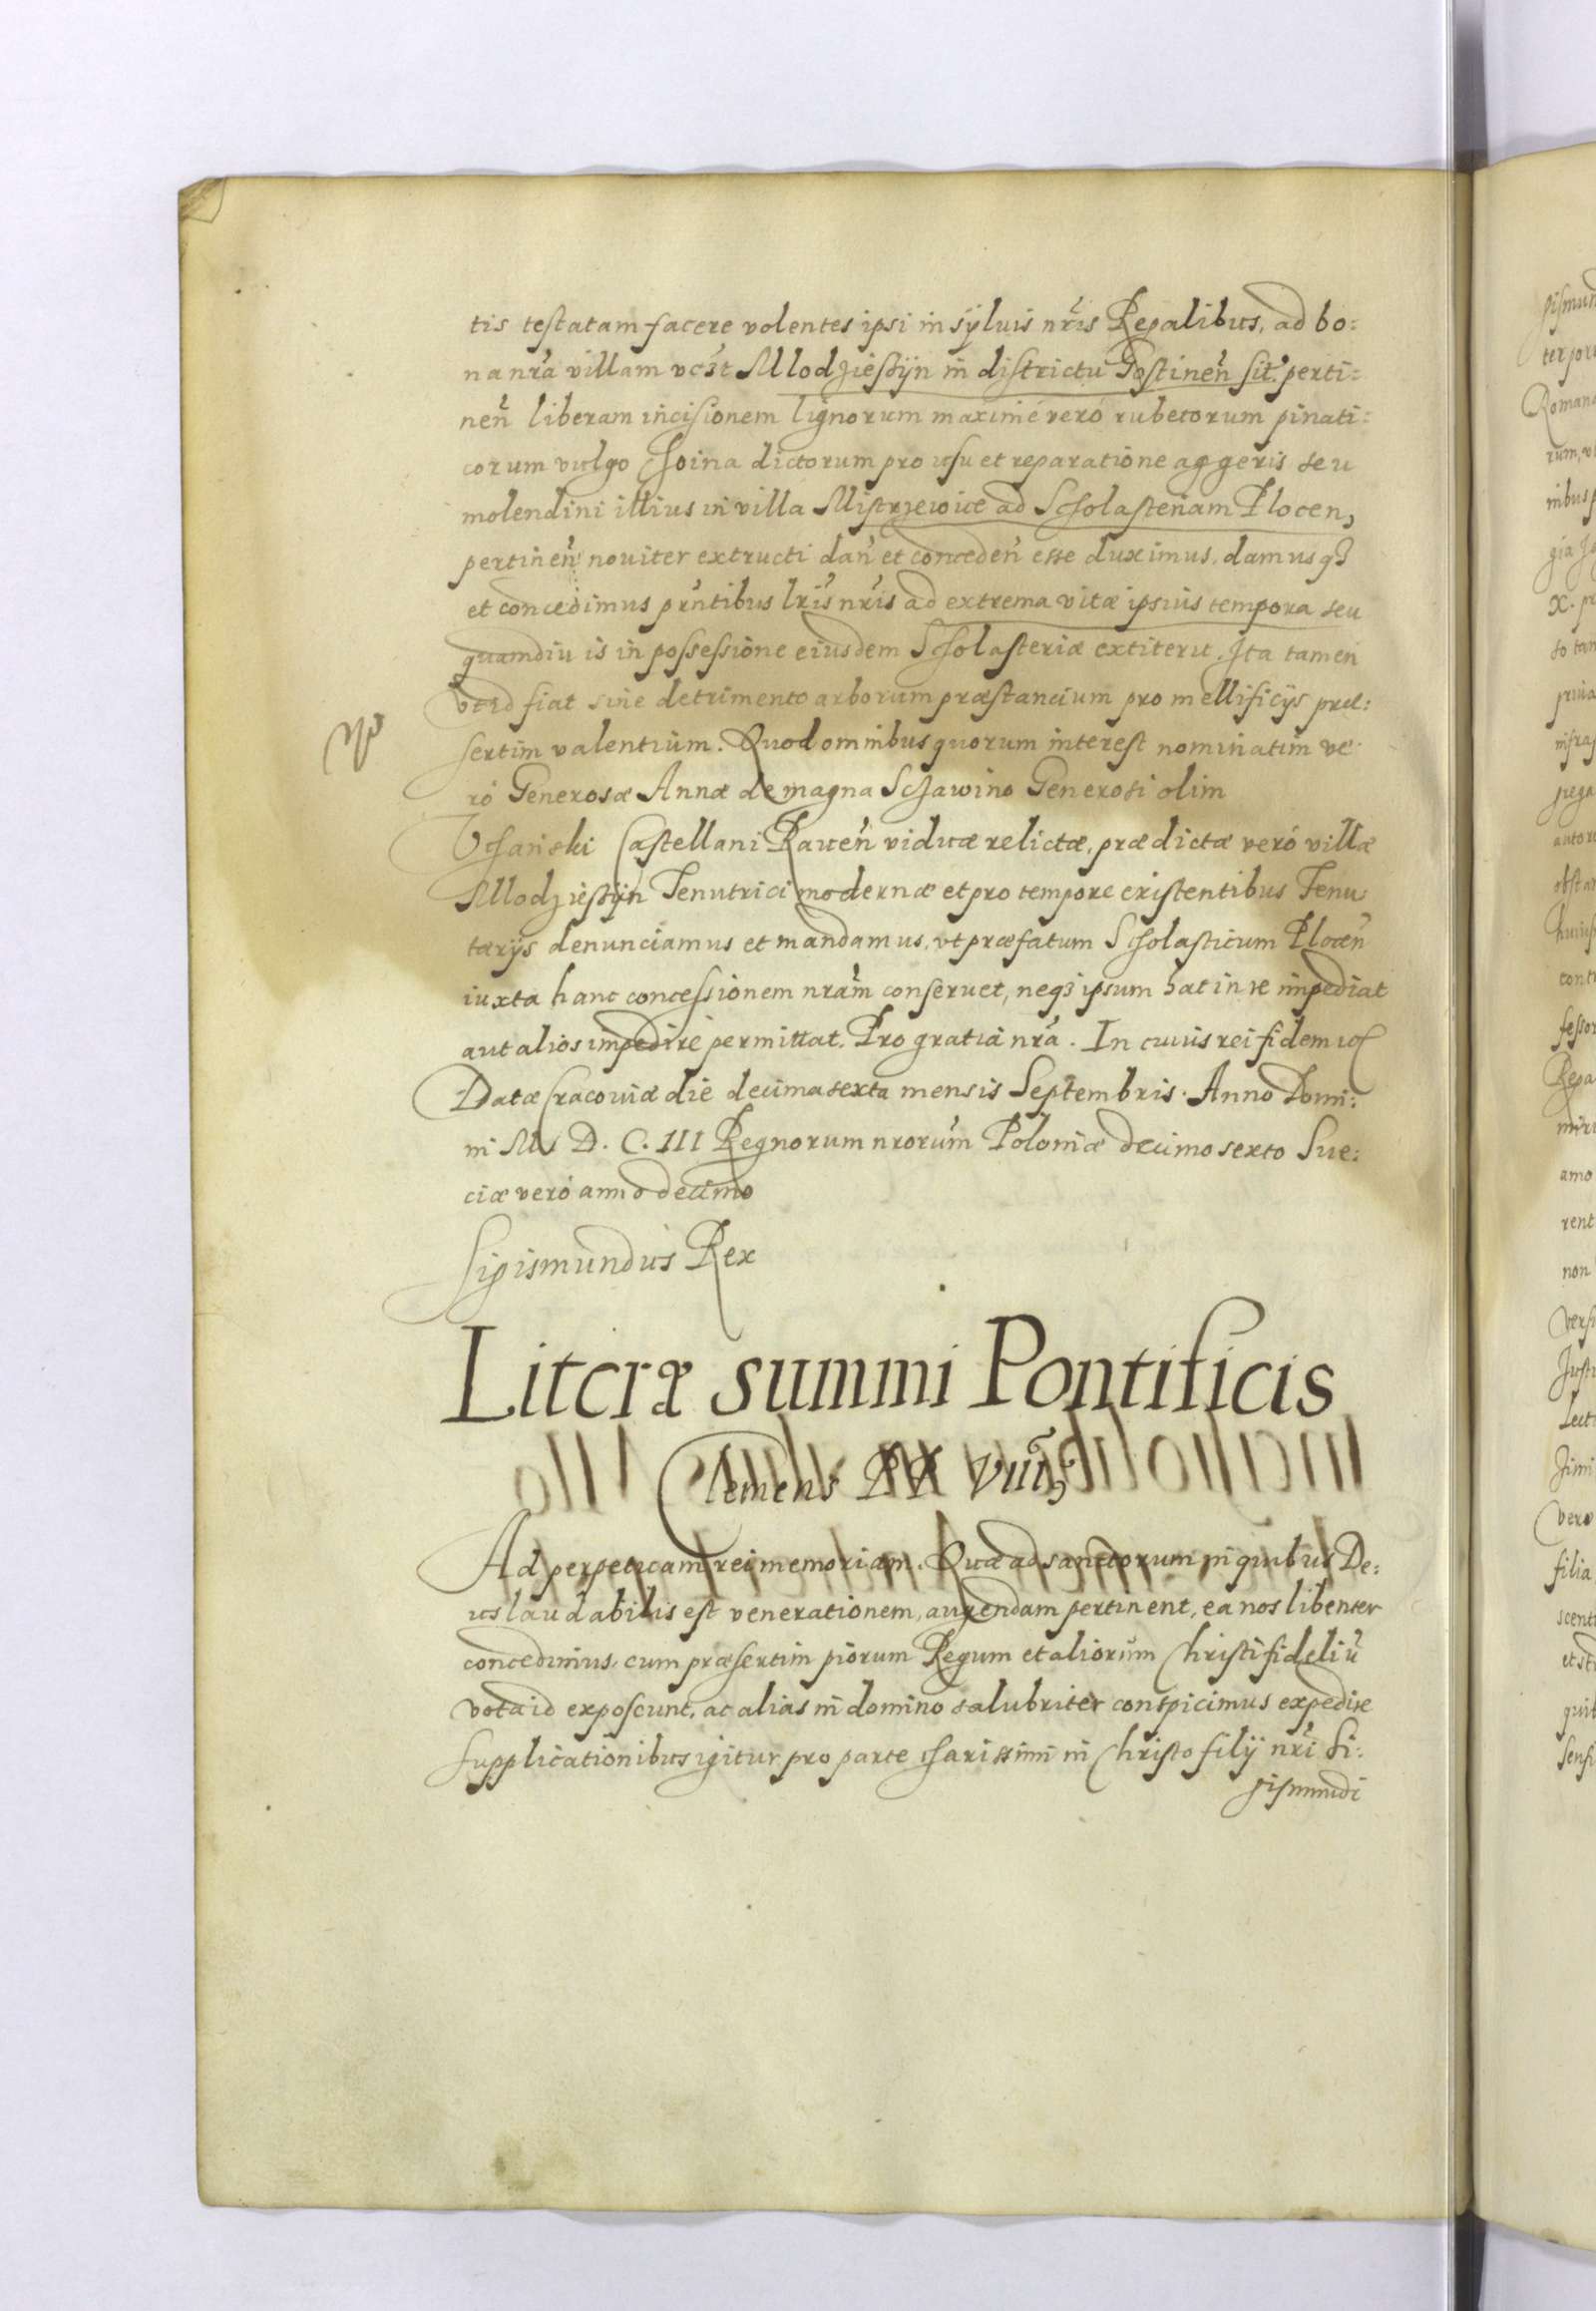 tis testatam facere volentes ipsi in syluis nr̃is Regalibus, ad bo:
na nr̃a villam vczt Mlodziessijn in districtu Gostinen̄ sit. perti:
nen̄ liberam incisionem lignorum maxime vero rubetorum pinati:
corum vulgo choina dictorum pro usu et reparatione aggeris seu
molendini illius in villa Mistrzewice ad Scholasteriam Plocen,
pertinen̄ noviter extructi dan̄ et conceden̄ esse duximus. damus qz
et concedimus prn̄tibus lr̃is nr̃is ad extrema vitæ ipsius tempora seu
quamdiu is in possessione eiusdem Scholasteriæ extiterit. Ita tamen
vt id fiat sine detrimento arborum præstancium pro mellificijs præ:
sertim valentium. Quod omnibus quorum interest nominatim ve
ro Generosæ Annæ de magna Sczawino Generosi olim
Vchański Castellani Raven̄ viduæ relictæ, prædictæ vero villæ
Mlodziessijn Tenutrici modernæ et pro tempore existentibus Tenu
tarijs denunciamus et mandamus, vt præfatum Scholasticum Plocen̄
iuxta hanc concessionem nram̄ conseruet, neqz ipsum hac in re impediat
aut alios impedire permittat. Pro gratia nr̃a. In cuius rei fidem
Datæ Cracoviæ die decima sexta mensis Septembris. Anno Domi:
ni M. D. C. III Regnorum nrorum̄ Poloniæ decimo sexto Sue:
ciæ vero anno decimo
Sigismundus Rex
Literæ summi Pontificis
Clemens PP VIII
Ad perpetuam rei memoriam. Quæ ad sanctorum in quibus De:
us laudabilis est venerationem, augendam pertinent, ea nos libenter
concedimus, cum præsertim piorum Regum et aliorum Christi fideliū
vota id exposcunt, ac alias in domino salubriter conspicimus expedire
supplicationibus igitur pro parte charissimi in Christo filij nr̃i Si:
gismundi